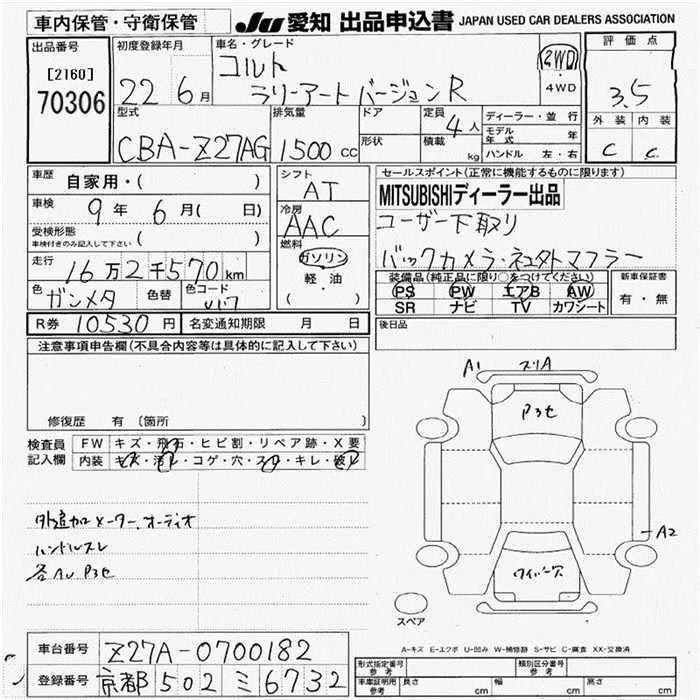 車内保管・守衛保管
JU 愛知 出品申込書 JAPAN USED CAR DEALERS ASSOCIATION
出品番号
[2160]
70306
初度登録年月
22 6月
車名・グレード
コルト
ラリーアート バージョンR
2WD
4WD
評価点
3.5
外装 内装
C C
型式
CBA-Z27AG
排気量
1500 CC
ドア
形状
定員
4人
積載
kg
ディーラー・並行
モデル年式 年
ハンドル 左・右
車歴
自家用・( )
車検
9年 6月( 日)
受検形態
車検付きのみ記入して下さい ( )
走行
16万2千570km
色
ガンメタ
色替
色コード
U17
シフト
AT
冷房
AAC
燃料
ガソリン
軽油
( )
セールスポイント(正常に機能するものに限ります)
MITSUBISHIディーラー出品
ユーザー下取り
バックカメラ・
マフラー
装備品(純正品に限り○をつけてください)
PS PW エアB AW
SR ナビ TV カワシート
新車保証書
有・無
R券 10530円
名変通知期限 月 日
後日品
注意事項申告欄(不具合内容等は具体的に記入して下さい)
修復歴 有 〔箇所 〕
検査員
記入欄
FW キズ・飛石・ヒビ割・リペア跡・X要
内装 キズ・汚レ・コゲ・穴・スレ・キレ・破レ
外追加メーター、オーディオ
ハンドルスレ
各AU P3セ
A1 スリA
P3セ
A2
ワイパー穴
スペア
A-キズ E-エクボ U-凹み W-補修跡 S-サビ C-腐食 XX-交換済
車台番号
Z27A-0700182
登録番号
京都 502 ミ 6732
形式指定番号
参考
類別区分番号
参考
車庫証明用
参考
長さ cm 幅 cm 高さ cm